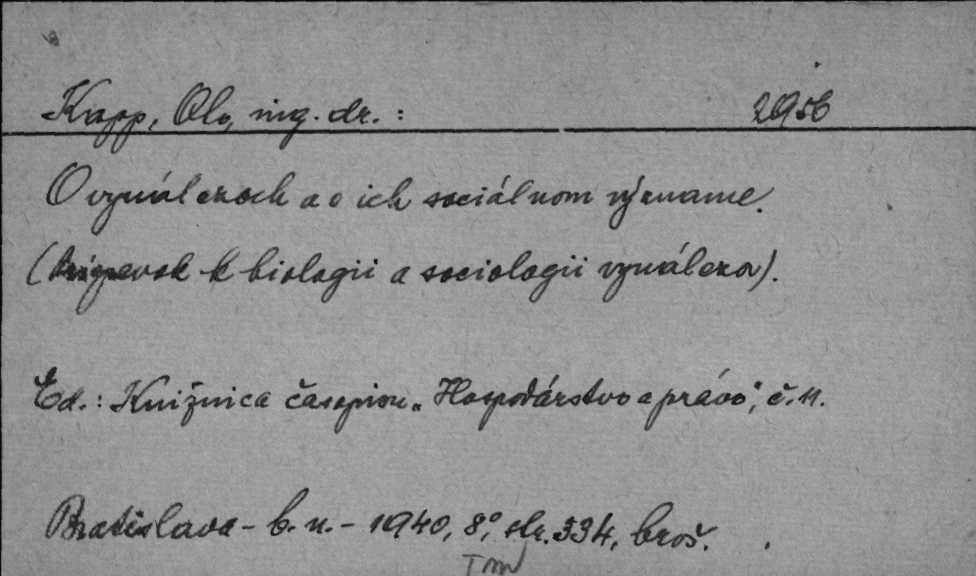 Knapp, Oto, ing. dr.: 2956
O vynálezoch a o ich sociálnom význame.
(Príspevok k biologii a sociologii vynálezov).
Ed.: Knižnica časopisu „Hospodárstvo a právo", č. 11.
Bratislava - b. n. - 1940, 8°, str. 334, brož.